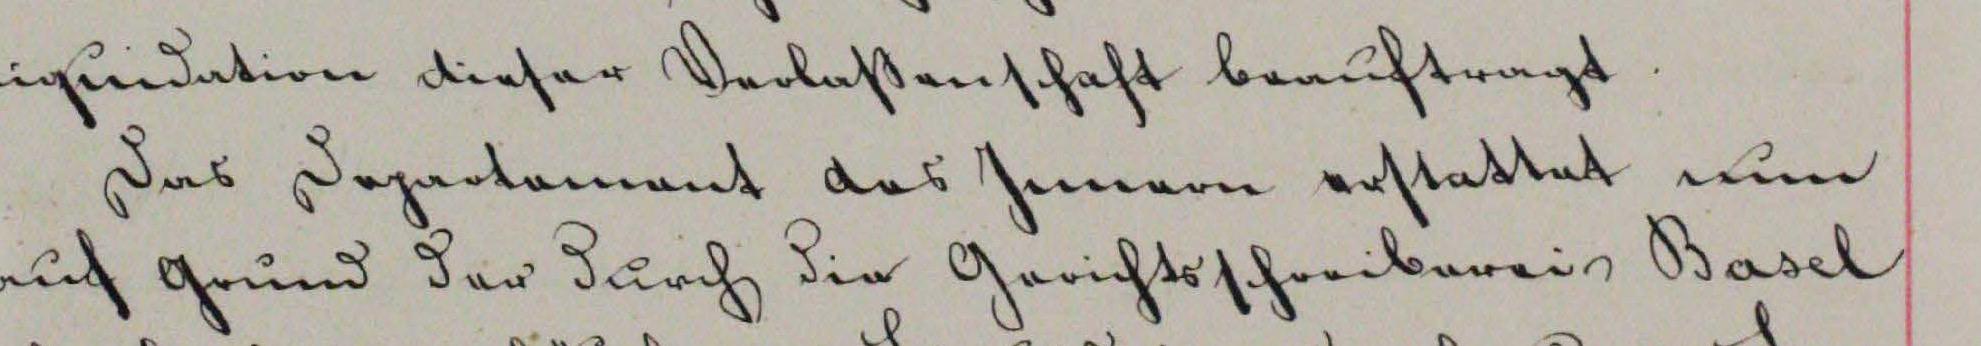 iquidation dieser Verlaßenschaft beauftragt.
Das Departement des Innern erstattet nun
auf Grund der durch die Gerichtsschreiberei Basel